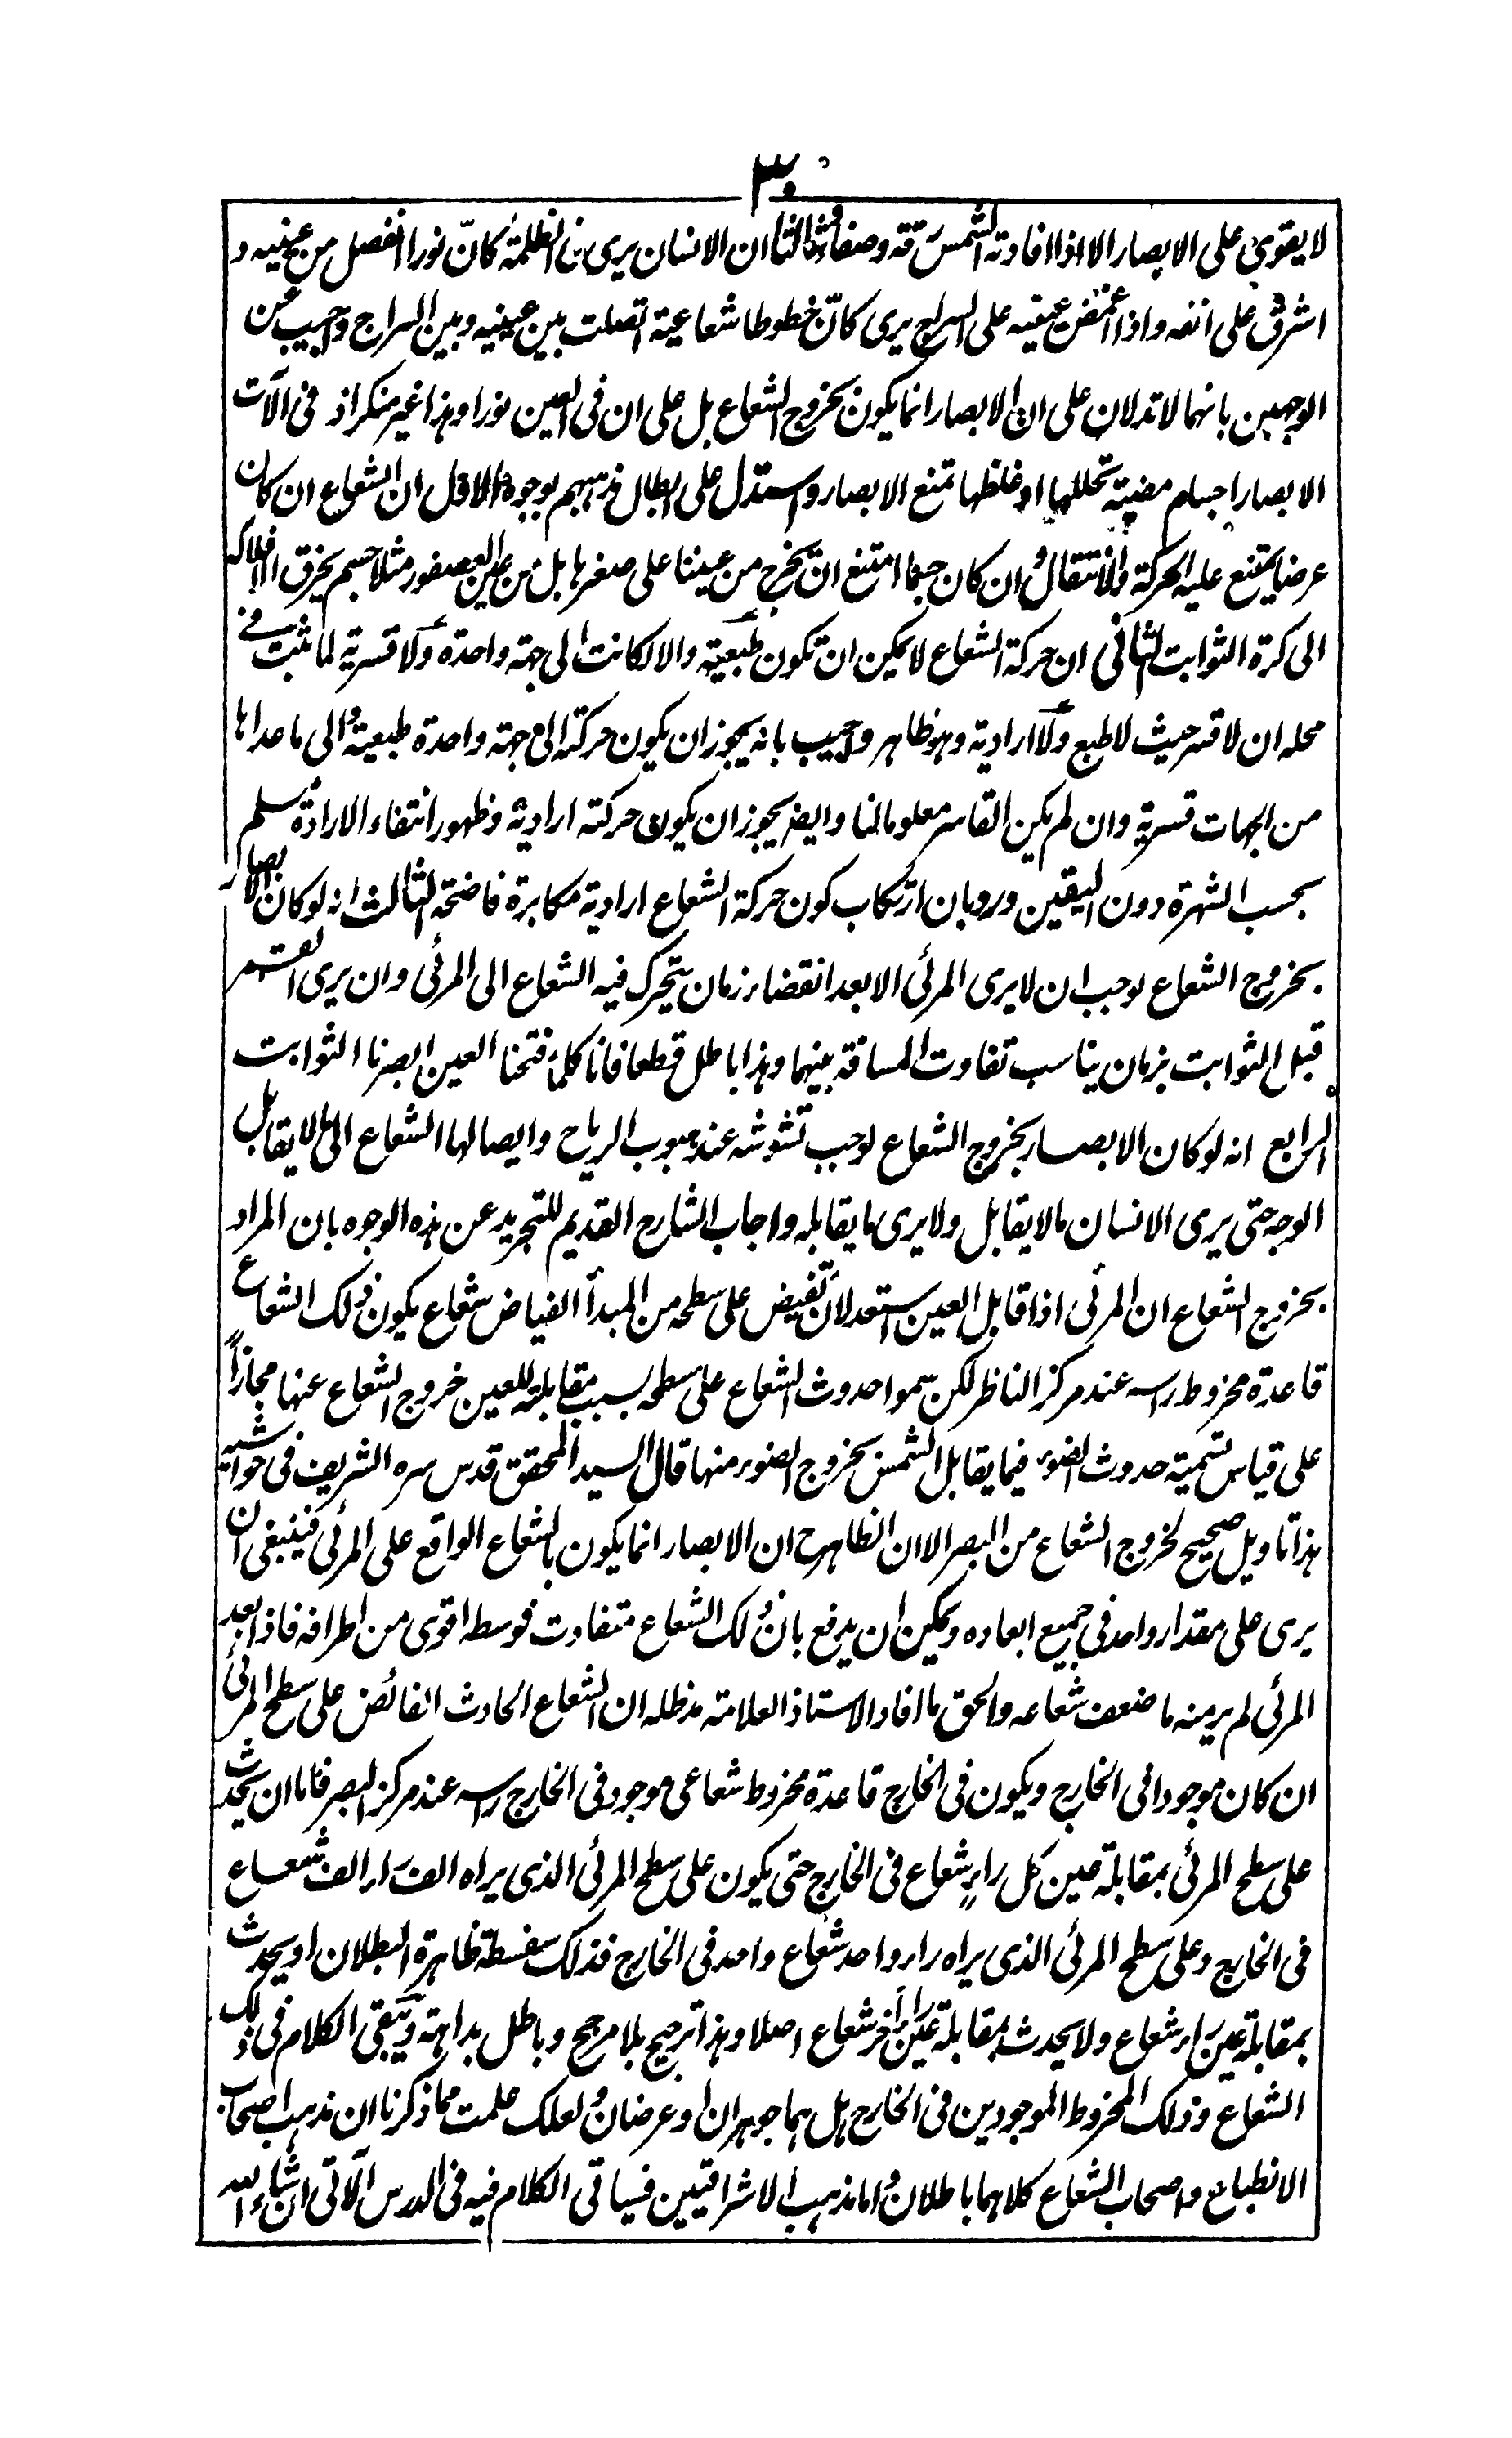 ٣٠
لا يقوى على الابصار الا اذا افادته الشمس رقة وصفاء وثالثا ان الانسان يرى في الظلمة كانّ نورا انفصل من عينيه و
اشرق على انفه واذا اغمض عينيه على السراج يرى كانّ خطوطا شعاعية اتصلت بين عينيه وبين السراج واجيب عن
الوجهين بانهما لا تدلان على ان الابصار انما يكون بخروج الشعاع بل على ان فى العين نورا وهذا غير منكر اذ فى آلات
الابصار اجسام مضيئة تحللها او غلظها تمنع الابصار واستدل على ابطال مذهبهم بوجوه الاول ان الشعاع ان كان
عرضا يمتنع عليه الحركة والانتقال وان كان جسما امتنع ان يخرج من عيننا على صغرها بل من عين العصفور مثلا جسم يخرق الافلاك
الى كرة الثوابت الثانى ان حركة الشعاع لا يمكن ان تكون طبعية والا لكانت الى جهة واحدة ولا قسرية لما ثبت فى
محله ان لا قسر حيث لا طبع ولا ارادية وهو ظاهر واجيب بانه يجوز ان يكون حركته الى جهة واحدة طبعية والى ما عداها
من الجهات قسرية وان لم يكن القاسر معلوما لنا وايضا يجوز ان يكون حركته ارادية وظهور انتفاء الارادة مسلم
بحسب الشهرة دون اليقين ورد بان ارتكاب كون حركة الشعاع ارادية مكابرة فاضحة الثالث انه لو كان الابصار
بخروج الشعاع لوجب ان لا يرى المرئى الا بعد انقضاء زمان يتحرك فيه الشعاع الى المرئى وان يرى القمر
قبل الثوابت بزمان يناسب تفاوت المسافة بينهما وهذا باطل قطعا فانا كلما فتحنا العين ابصرنا الثوابت
الرابع انه لو كان الابصار بخروج الشعاع لوجب تشوشه عند هبوب الرياح وايصالها الشعاع الى ما لا يقابل
الوجه حتى يرى الانسان ما لا يقابل ولا يرى ما يقابله واجاب الشارح القديم للتجريد عن هذه الوجوه بان المراد
بخروج الشعاع ان المرئى اذا قابل العين استعد لان تفيض على سطحه من المبدأ الفياض شعاع يكون ذلك الشعاع
قاعدة مخروط راسه عند مركز الناظر لكن سموا حدوث الشعاع على سطحه بسبب مقابلته للعين خروج الشعاع عنها مجازاً
على قياس تسمية حدوث الضوء فيما يقابل الشمس بخروج الضوء منها قال السيد المحقق قدس سره الشريف فى حواشيه
هذا تاويل صحيح لخروج الشعاع من البصر الا ان الظاهر ح ان الابصار انما يكون بالشعاع الواقع على المرئى فينبغى ان
يرى على مقدار واحد فى جميع ابعاده ويمكن ان يدفع بان ذلك الشعاع متفاوت فوسطه اقوى من اطرافه فاذا بعد
المرئى لم ير منه ما ضعف شعاعه والحق ما افاد الاستاذ العلامة مد ظله ان الشعاع الحادث الفائض على سطح المرئى
ان كان موجودا فى الخارج ويكون فى الخارج قاعدة مخروط شعاعى موجود فى الخارج راسه عند مركز البصر فاما ان يحدث
على سطح المرئى بمقابلة عين كل راءٍ شعاع فى الخارج حتى يكون على سطح المرئى الذى يراه الف راء الف شعاع
فى الخارج وعلى سطح المرئى الذى يراه راء واحد شعاع واحد فى الخارج فذلك سفسطة ظاهرة البطلان او يحدث
بمقابلة عين راء شعاع ولا يحدث بمقابلة عين راء آخر شعاع اصلا وهذا ترجيح بلا مرجح وباطل بداهة ويبقى الكلام فى ذلك
الشعاع وذلك المخروط الموجودين فى الخارج هل هما جوهران او عرضان ولعلك علمت مما ذكرنا ان مذهب اصحاب
الانطباع واصحاب الشعاع كلاهما باطلان واما مذهب الاشراقيين فسياتى الكلام فيه فى الدرس الآتى ان شاء الله